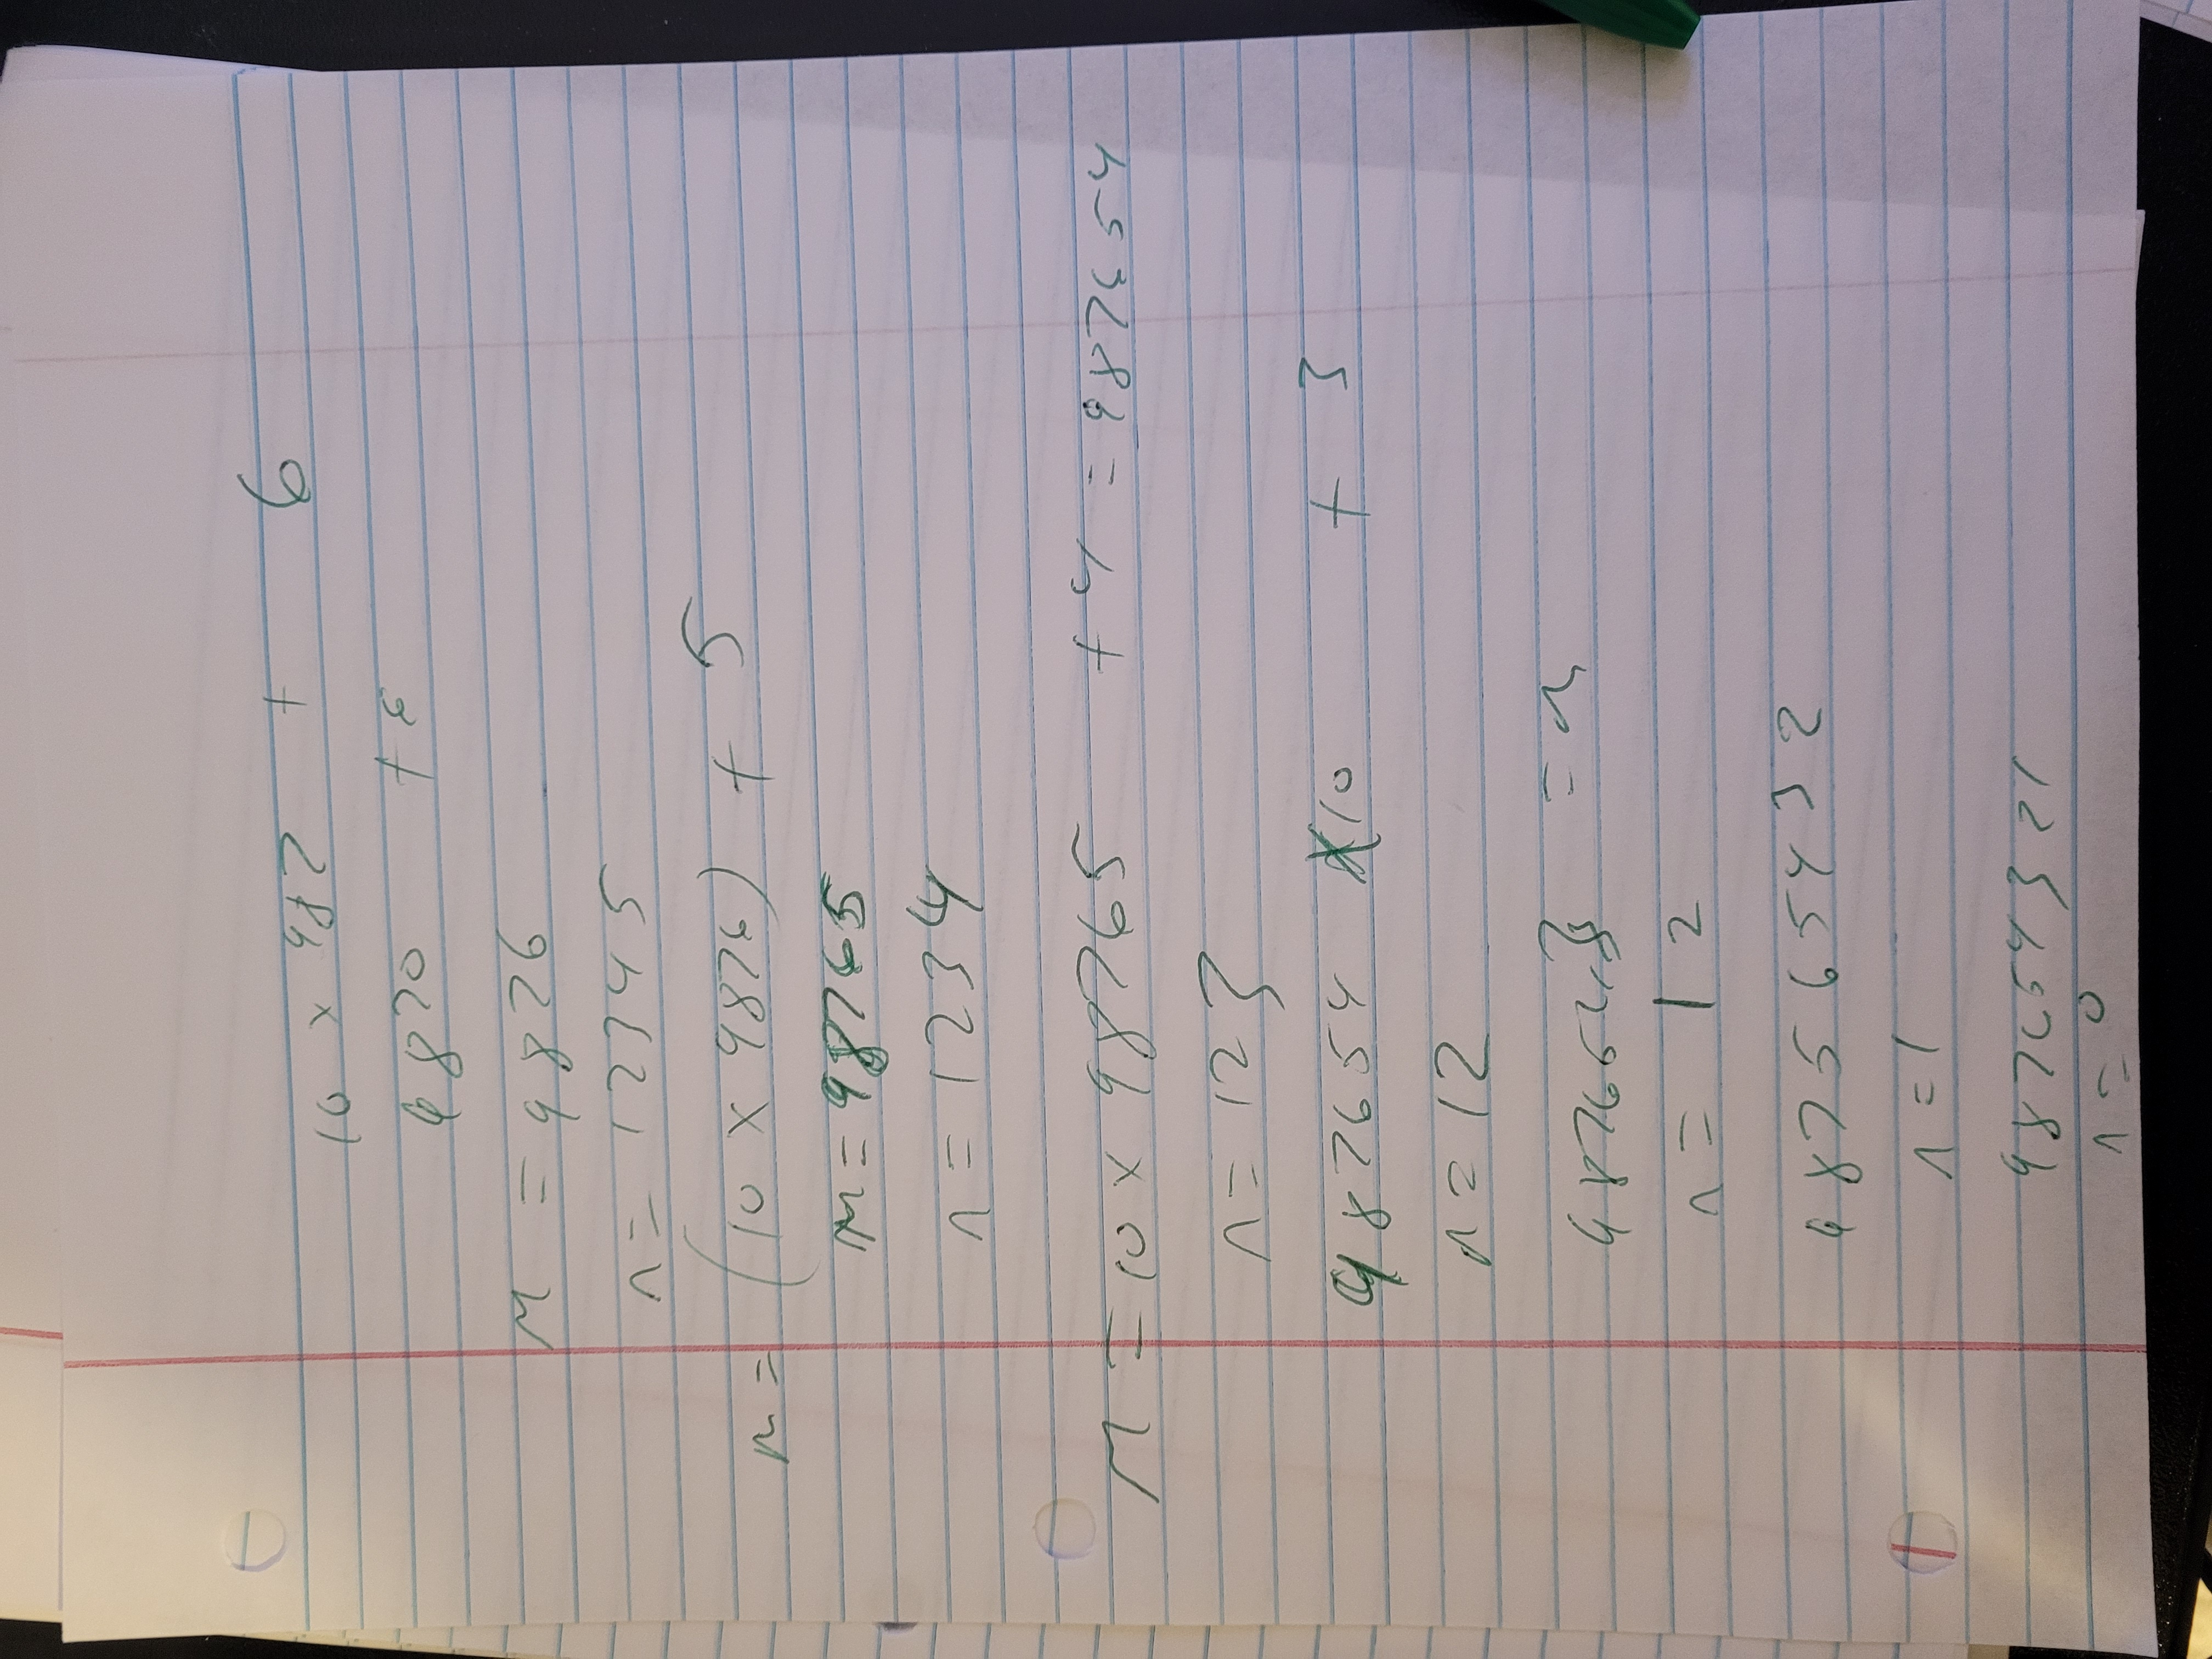 10 x 987 + 6
9870 + 6
m = 9876
n = 12345
m = (10 x 9876) + 5
m = 98765
n = 1234
m = 10 x 98765 + 4 = 987654
n = 123
987654 x10 + 3
n = 12
9876543 = m
n = 12
987565432
n = 1
987654321
n = 0